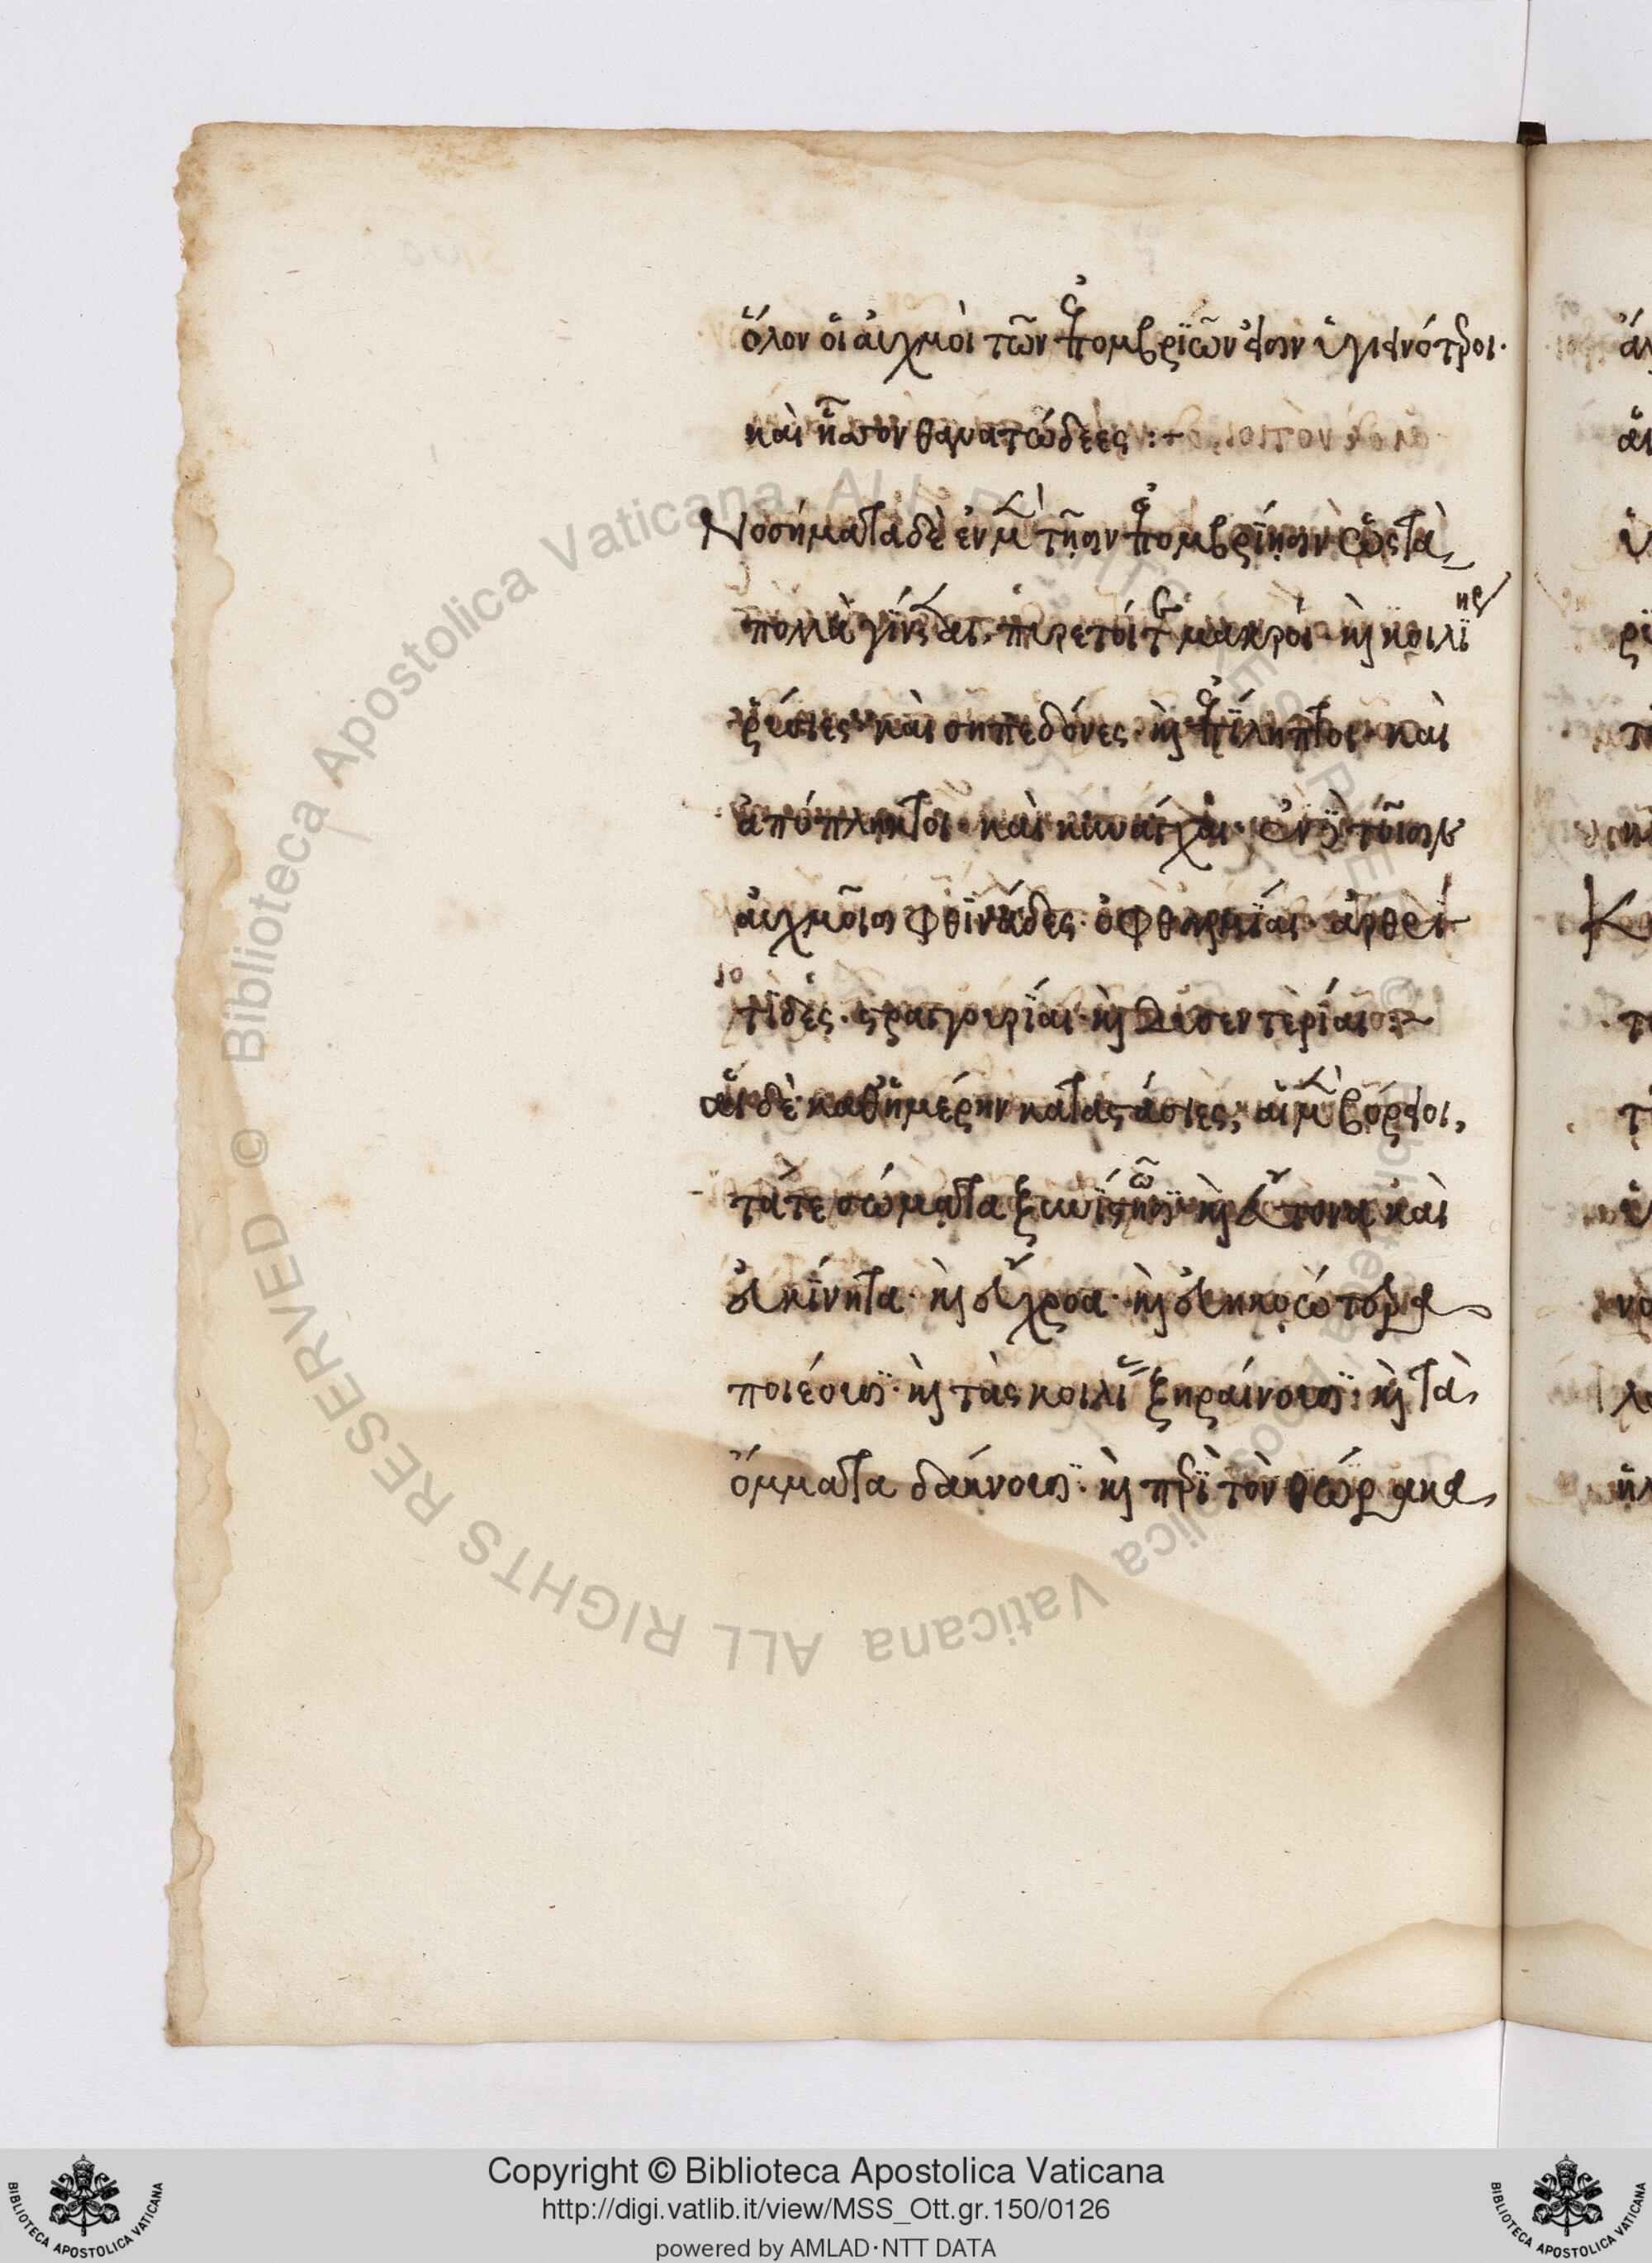 ὅλον οἱ αὐχμοὶ τῶν ἐπομβριῶν εἰσιν ὑγιεινότεροι·
καὶ ἧσσον θανατώδεες :~
Νοσήματα δὲ ἐν μὲν τῇσιν ἐπομβρίῃσιν ὡς τὰ
πολλὰ γίνεται, πυρετοί τε μακροί· καὶ κοιλίης
ῥύσιες· καὶ σηπεδόνες· καὶ ἐπίληπτοι· καὶ
ἀπόπληκτοι· καὶ κυνάγχαι· ἐν δὲ τοῖσιν
αὐχμοῖσι φθινάδες· ὀφθαλμίαι· ἀρθρί
τιδες· στραγγουρίαι· καὶ δυσεντερίαι :~
αἱ δὲ καθημέρην καταστάσιες, αἱ μὲν βόρειοι,
τά τε σώματα ξυνιστῶσι· καὶ εὔτονα καὶ
εὐκίνητα· καὶ εὔχροα· καὶ εὐηκοώτερα
ποιέουσι· καὶ τὰς κοιλίας ξηραίνουσι· καὶ τὰ
ὄμματα δάκνουσι· καὶ περὶ τὸν θώρακα
Copyright © Biblioteca Apostolica Vaticana
http://digi.vatlib.it/view/MSS_Ott.gr.150/0126
powered by AMLAD·NTT DATA